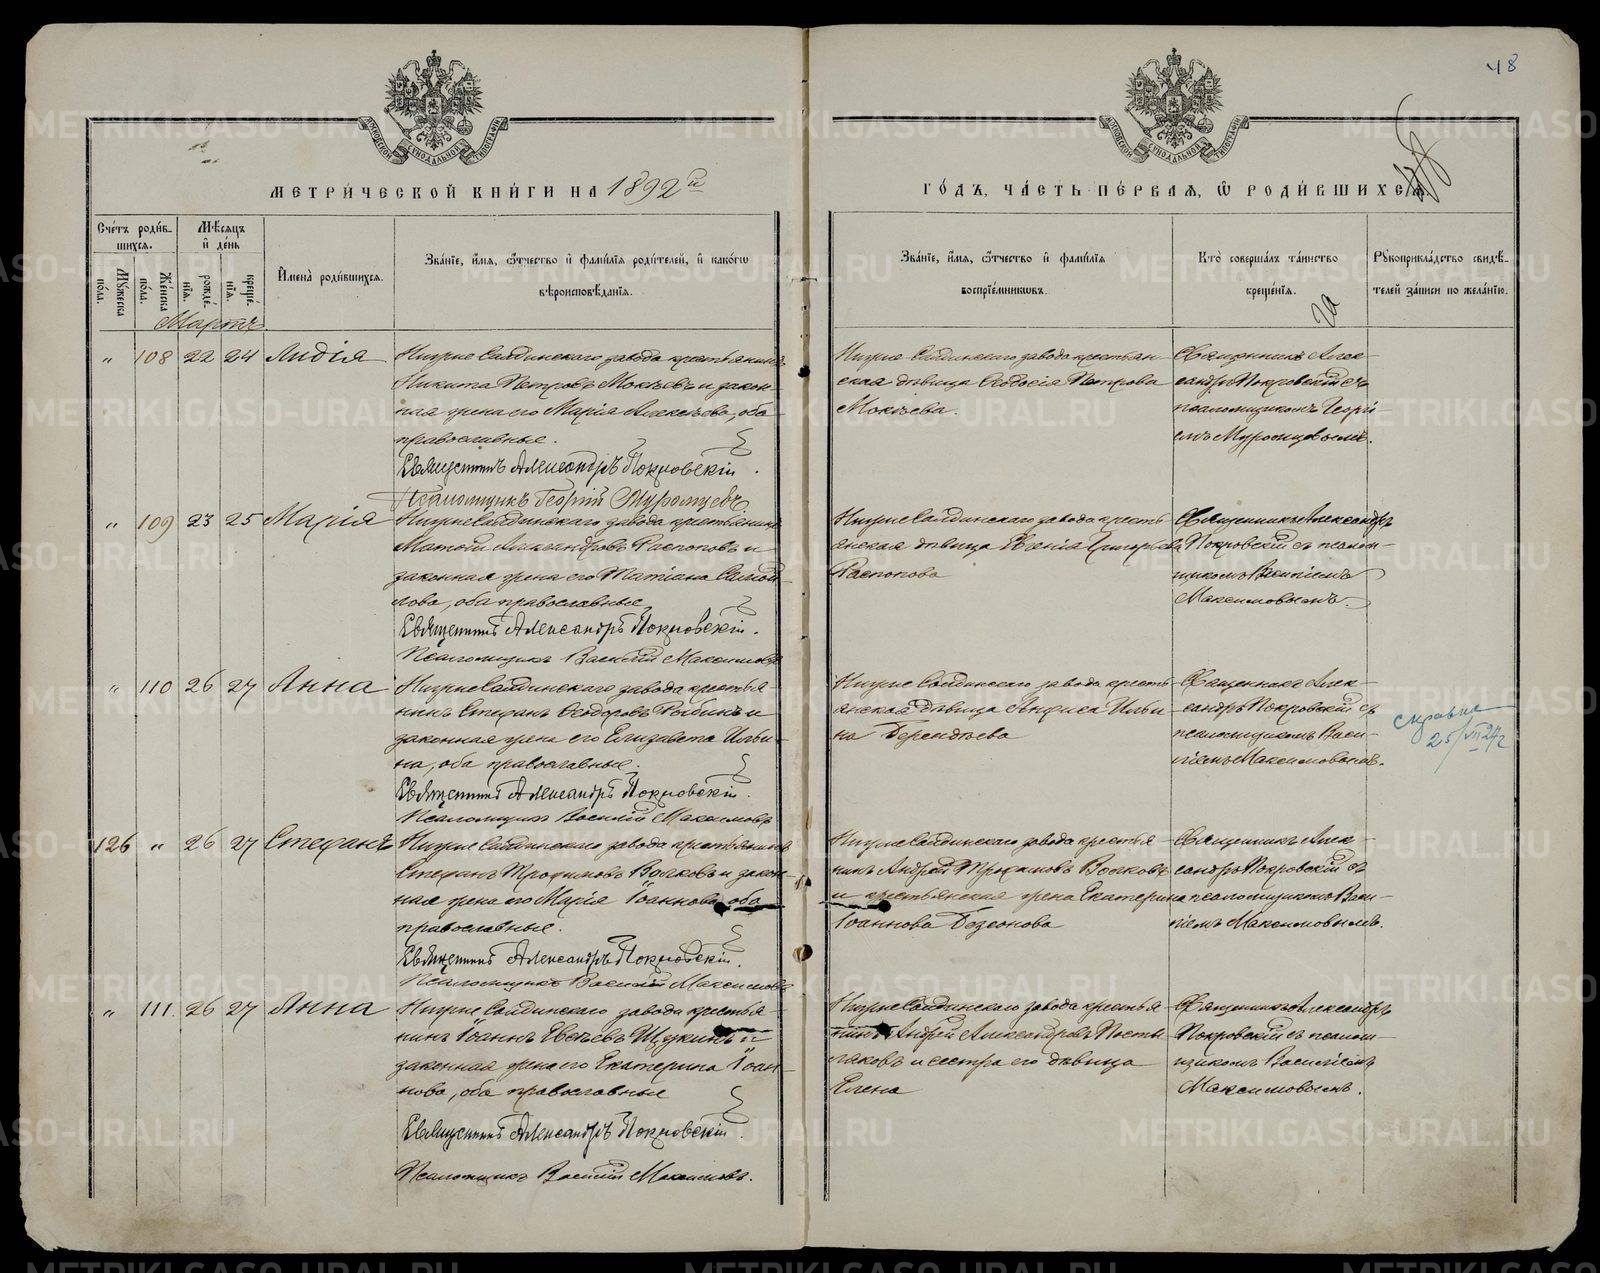 48
МОСКОВСКОЙ СѴНОДАЛЬНОЙ ТИПОГРАФІИ
МОСКОВСКОЙ СѴНОДАЛЬНОЙ ТИПОГРАФІИ
МЕТРИ́ЧЕСКОЙ КНИ́ГИ НА 1892й
ГО́ДЪ, ЧА́СТЬ ПЕ́РВАЯ, Ѿ РОДИ́ВШИХСЯ.
Сче́тъ роди́в-
шихся.
Мꙋжеска по́ла.
Же́нска по́ла.
Мѣ́сяцъ
и́ де́нь
рожде́нїя.
креще́нїя.
И҆мена̀ роди́вшихся.
Зва́нїе, и҆́мя, ѻ҆́тчество и҆ фами́лїя роди́телей, и҆ како́гѡ
вѣроисповѣ́данїя.
Зва́нїе, и҆́мя, ѻ҆́тчество и҆ фами́лїя
воспрїе́мникѡвъ.
Кто̀ соверша́лъ та́инство
креще́нїя.
Рꙋкоприкла́дство свидѣ́-
телей за́писи по жела́нїю.
Мартъ.
„ 108 22 24 Лидія
Нижне Салдинскаго завода крестьянинъ
Никита Петровъ Мокѣевъ и закон-
ная жена его Марія Алексѣева, оба
православные.
Священникъ Александръ Покровскій.
Псаломщикъ Георгій Муромцевъ.
Нижне-Салдинскаго завода крестьян-
ская дѣвица Ѳеодосія Петрова
Мокѣева.
Священникъ Алек-
сандръ Покровскій съ
псаломщикомъ Георгі-
емъ Муромцовымъ.
„ 109 23 25 Марія
Нижне Салдинскаго завода крестьянинъ
Матѳій Александровъ Распоповъ и
законная жена его Татіана Самой-
лова, оба православные
Священникъ Александръ Покровскій.
Псаломщикъ Василій Максимовъ
Нижне Салдинскаго завода кресть
янская дѣвица Евгенія Григорьева
Распопова
Священникъ Александръ
Покровскій съ псалом-
щикомъ Василіемъ
Максимовымъ.
„ 110 26 27 Анна
Нижне Салдинскаго завода крестья-
нинъ Стефанъ Ѳеодоровъ Рыбинъ и
законная жена его Елизавета Ильи-
на, оба православные.
Священникъ Александръ Покровскій.
Псаломщикъ Василій Максимовъ
Нижне Салдинскаго завода кресть-
янская дѣвица Анфиса Ильи-
на Берендѣева
Священникъ Алек-
сандръ Покровскій съ
псаломщикомъ Васи-
ліемъ Максимовымъ.
справка
25/VII 24 г
126 „ 26 27 Стефанъ
Нижне Салдинскаго завода крестьянинъ
Стефанъ Трофимовъ Волковъ и закон-
ная жена его Марія Іоаннова, оба
православные.
Священникъ Александръ Покровскій.
Псаломщикъ Василій Максимовъ
Нижне Салдинскаго завода крестья-
нинъ Андрей Трофимовъ Волковъ
и крестьянская жена Екатерина
Іоаннова
Священникъ Алек-
сандръ Покровскій съ
псаломщикомъ Васи-
ліемъ Максимовымъ.
„ 111. 26 27 Анна
Нижне Салдинскаго завода крестья-
нинъ Іоаннъ Евсѣевъ Щукинъ и
законная жена его Екатерина Іоан-
нова, оба православные
Священникъ Александръ Покровскій.
Псаломщикъ Василій Максимовъ.
Нижне Салдинскаго завода крестья
нинъ Андрей Александровъ Посты-
ляковъ и сестра его дѣвица
Елена
Священникъ Александръ
Покровскій съ псалом-
щикомъ Василіемъ
Максимовымъ.
METRIKI.GASO-URAL.RU